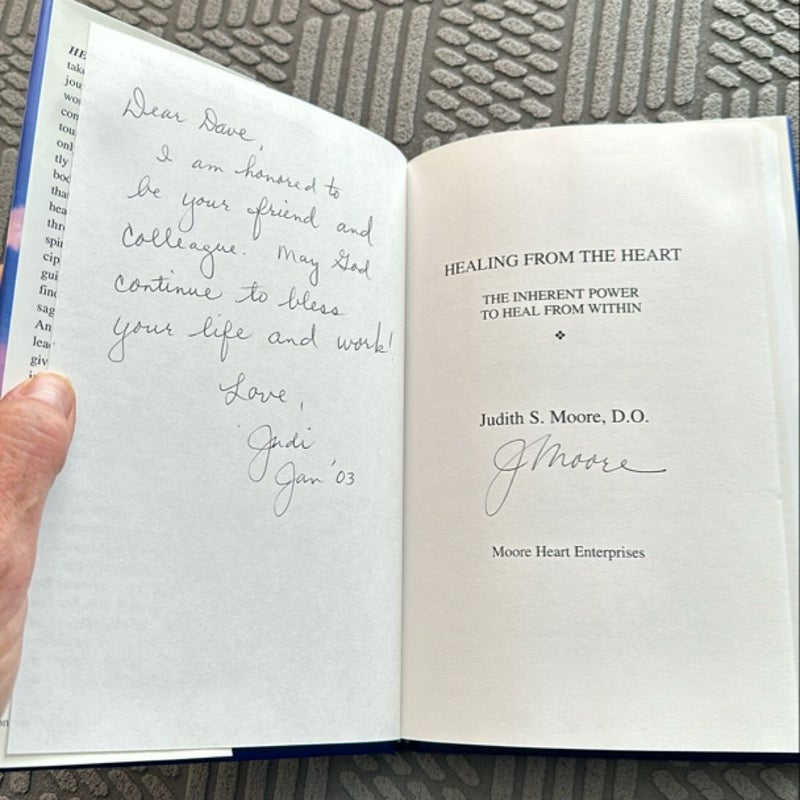 HE
tak
jou
wo
con
tou
onl
tly
bod
tha
hea
thr
spi
cip
gui
fin
sag
An
lea
giv
Dear Dave,
I am honored to
be your friend and
colleague. May God
continue to bless
your life and work!
Love,
Judi
Jan '03
HEALING FROM THE HEART
THE INHERENT POWER
TO HEAL FROM WITHIN
Judith S. Moore, D.O.
J Moore
Moore Heart Enterprises